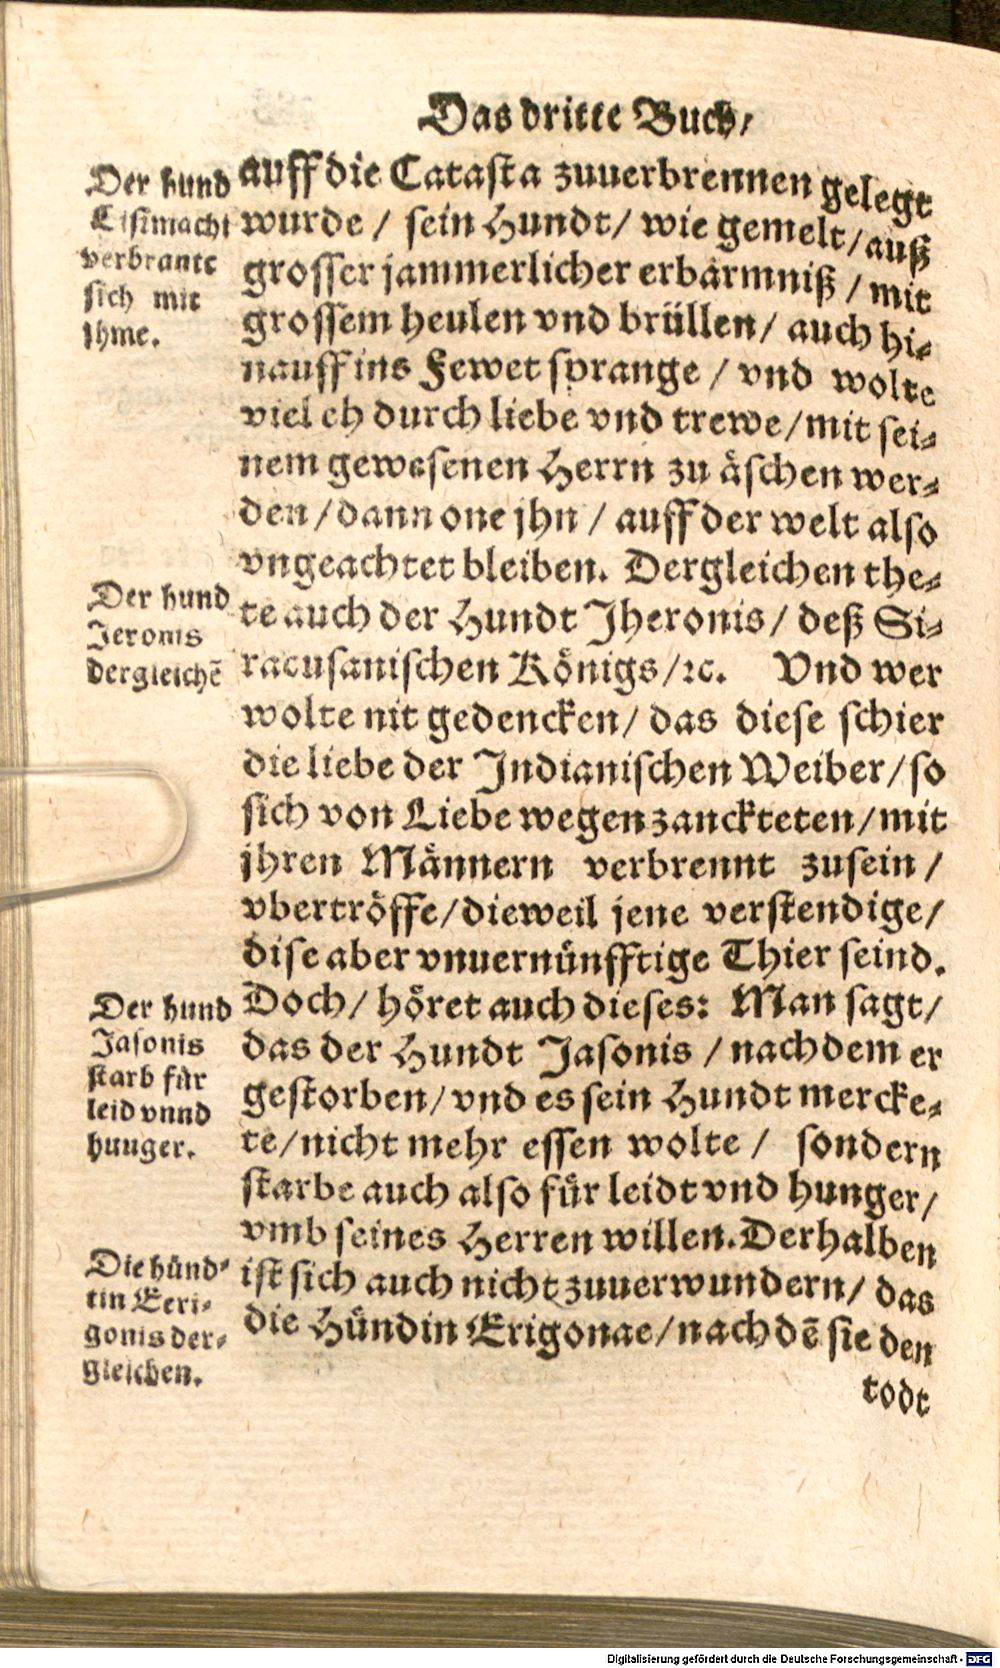 Das dritte Buch/
auff die Catasta zuuerbrennen gelegt
wurde / sein Hundt/ wie gemelt/auß
grosser jammerlicher erbärmniß / mit
grossem heulen vnd brüllen/ auch hi-
nauff ins Fewet sprange / vnd wolte
viel eh durch liebe vnd trewe/mit sei-
nem gewesenen Herrn zu äschen wer-
den/dann one jhn / auff der welt also
vngeachtet bleiben. Dergleichen the-
te auch der Hundt Jheronis/ deß Si-
racusanischen Königs/ꝛc. Vnd wer
wolte nit gedencken/ das diese schier
die liebe der Indianischen Weiber/so
sich von Liebe wegen zanckteten/mit
jhren Männern verbrennt zusein /
vbertröffe/dieweil jene verstendige/
dise aber vnuernünfftige Thier seind.
Doch/ höret auch dieses: Man sagt/
das der Hundt Jasonis /nachdem er
gestorben/vnd es sein Hundt mercke-
te/nicht mehr essen wolte / sondern
starbe auch also für leidt vnd hunger/
vmb seines Herren willen. Derhalben
ist sich auch nicht zuuerwundern/ das
die Hündin Erigonae/nach dē sie den
todt
Der hund
Lisimachi
verbrante
sich mit
jhme.
Der hund
Jeronis
dergleichē
Der hund
Jasonis
starb für
leid vnnd
hunger.
Die hünd-
tin Eeri-
gonis der-
gleichen.
Digitalisierung gefördert durch die Deutsche Forschungsgemeinschaft - DFG